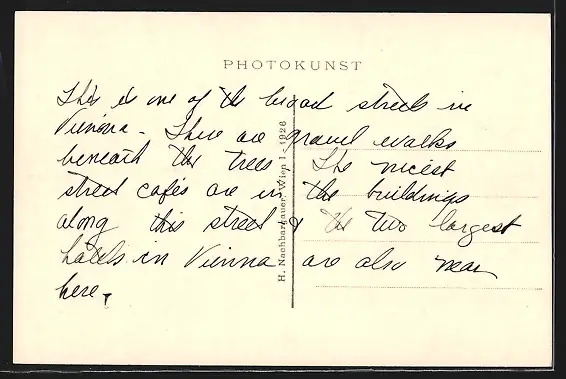 PHOTOKUNST
This is one of the broad streets in
Vienna - There are gravel walks
beneath the trees. The nicest
street cafés are in the buildings
along this street & the two largest
hotels in Vienna are also near
here.
H. Nachbargauer, Wien I - 1926